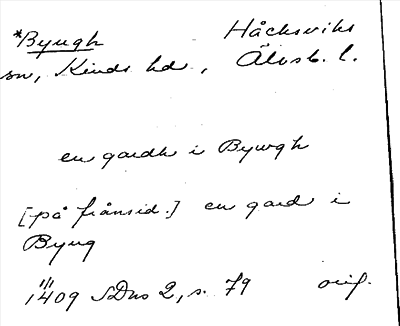 *Byugh Håcksviks
sn, Kinds hd, Älvsb. l.
en gardh i Bywgh
[på frånsid.] en gard i
Byug
1/11 1409 SDns 2, s. 79 orig.